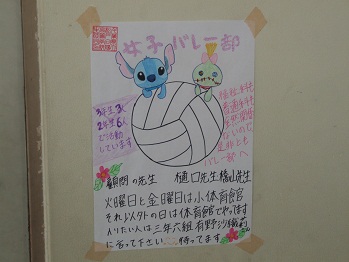 女子バレー部
3年生3人
2年生6人
で活動
しています
是非とも
バレー部へ
顧問の先生 樋口先生 橋山先生
火曜日と金曜日は小体育館
それ以外の日は体育館でやってます
入りたい人は三年六組有野沙織
に言って下さい 待ってます